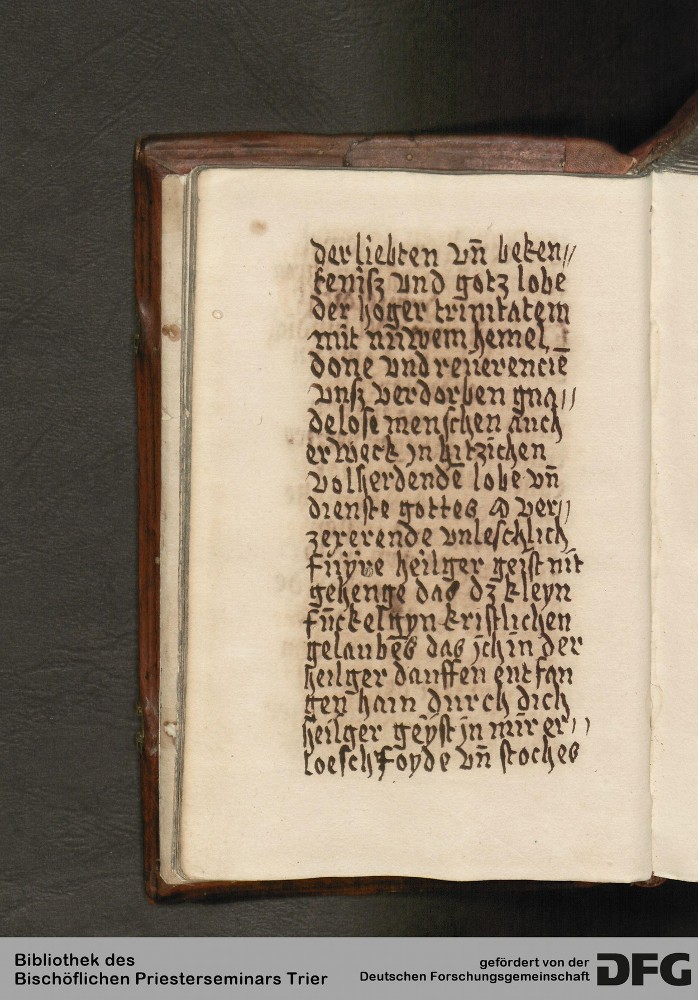 der liebten vn̄ beken〃
teniſz vnd gotz lobe
der hoger trinitatem
mit nūwem hemel_
done vnd reuerenciē
vnſz verdorben gna〃
deloſe menſchen auch
erweck jn hitzichen
volherdende lobe vn̄
dienſte gottes O ver〃
zexerende vnleſchlich
fuÿre heilger geiſt nit
gehenge das dz kleyn
fūckelgyn kriſtlichen
gelaubēs das jch in der
heilger dauffen entfan
gen hain durch dich
heilger geyſt jn mir er〃
loeſch Foyde vn̄ ſtoches
Bibliothek des
Bischöflichen Priesterseminars Trier
gefördert von der
Deutschen Forschungsgemeinschaft
DFG